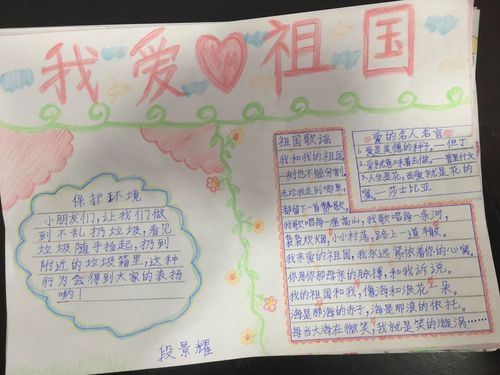 我爱祖国
保护环境
小朋友们，让我们做
到不乱扔垃圾，看见
垃圾随手捡起，扔到
附近的垃圾箱里，这种
行为会得到大家的表扬
哟！
段景耀
祖国歌谣
我和我的祖国
一刻也不能分割，
无论我走到哪里，
都留下一首赞歌。
我歌唱每一座高山，我歌唱每一条河，
袅袅炊烟，小小村落，路上一道辙。
我亲爱的祖国，我永远紧依着你的心窝，
你用你那母亲的脉搏，和我诉说。
我的祖国和我，像海和浪花一朵。
海是那海的赤子，海是那浪的依托。
每当大海在微笑，我就是笑的漩涡……
爱的名人名言
1. 爱是美德的种子。——但丁
2.
3. 人生是花，而爱就是花的
蜜。——莎士比亚